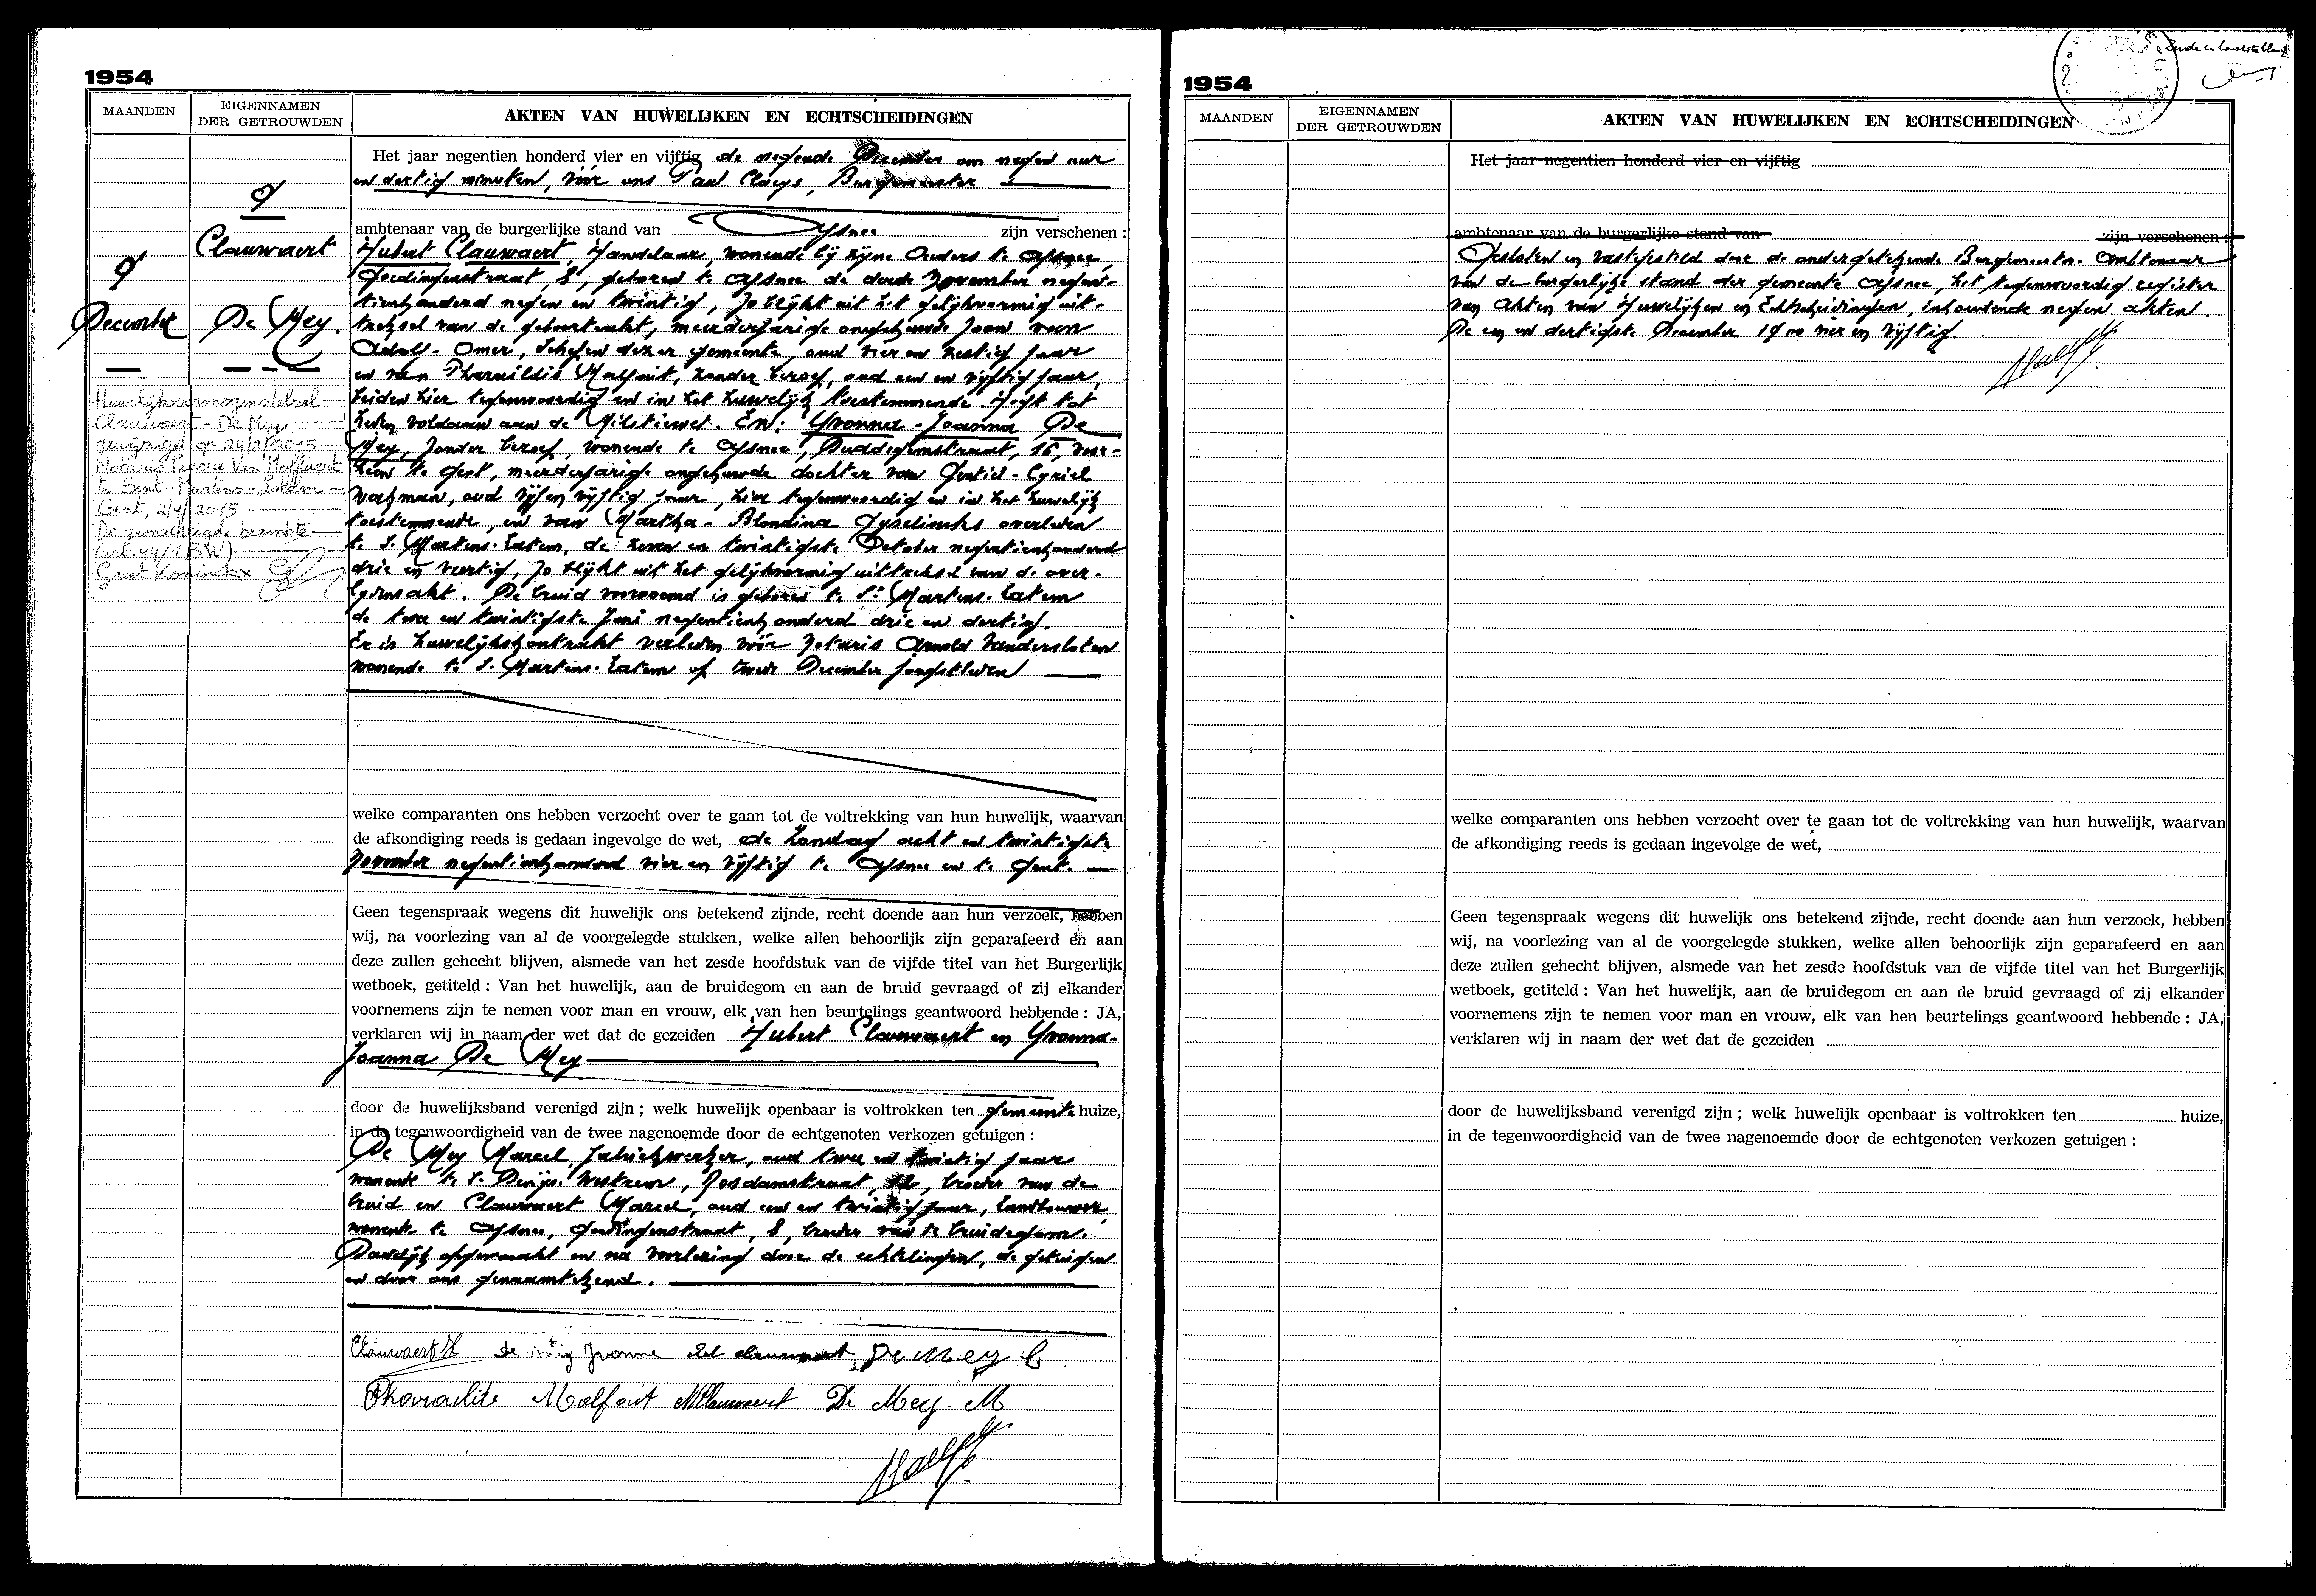 1954
MAANDEN
EIGENNAMEN
DER GETROUWDEN
AKTEN VAN HUWELIJKEN EN ECHTSCHEIDINGEN
9
Clauwaert
9
December
De Mey.
Huwelijksvermogenstelsel —
Clauwaert - De Mey —
gewijzigd op 24/2/2015 —
Notaris Pierre Van Moffaert
te Sint-Martens-Latem —
Gent, 2/4/2015 —
De gemachtigde beambte —
(art. 44/1 BW) —
Greet Koninckx
Het jaar negentien honderd vier en vijftig de negende December om negen uur
en dertig minuten, vóór ons Paul Claeys, Burgemeester
ambtenaar van de burgerlijke stand van Afsnee zijn verschenen :
Hubert Clauwaert, Handelaar, wonende bij zijne Ouders te Afsnee,
Goedingenstraat, 8, geboren te Afsnee de derde November negen-
tienhonderd negen en twintig, zo blijkt uit het gelijkvormig uit-
treksel van de geboorteakt, meerderjarige ongehuwde zoon van
Adolf-Omer, Schepen dezer gemeente, oud vier en zestig jaar
en van Pharaildis Malfait, zonder beroep, oud een en vijftig jaar,
beiden hier tegenwoordig en in het huwelijk toestemmende. Heeft tot
heden voldaan aan de Militiewet. En: Yvonna-Joanna De
Mey, zonder beroep, wonende te Afsnee, Duddegemstraat, 16, voor-
heen te Gent, meerderjarige ongehuwde dochter van Gentiel-Cyriel
werkman, oud vijf en vijftig jaar, hier tegenwoordig en in het huwelijk
toestemmende, en van Martha-Blondina Gyselincks overleden
te S. Martens-Latem, de zeven en twintigste October negentienhonderd
drie en veertig, zo blijkt uit het gelijkvormig uittreksel van de over-
lijdensakt. De bruid voornoemd is geboren te St. Martens-Latem
de twee en twintigste Juni negentienhonderd drie en dertig.
Er is huwelijkskontrakt verleden vóór Notaris Arnold Vandersloten
wonende te S. Martens-Latem op twede December jongstleden
welke comparanten ons hebben verzocht over te gaan tot de voltrekking van hun huwelijk, waarvan
de afkondiging reeds is gedaan ingevolge de wet, de Zondag acht en twintigste
November negentienhonderd vier en vijftig te Afsnee en te Gent.
Geen tegenspraak wegens dit huwelijk ons betekend zijnde, recht doende aan hun verzoek, hebben
wij, na voorlezing van al de voorgelegde stukken, welke allen behoorlijk zijn geparafeerd en aan
deze zullen gehecht blijven, alsmede van het zesde hoofdstuk van de vijfde titel van het Burgerlijk
wetboek, getiteld : Van het huwelijk, aan de bruidegom en aan de bruid gevraagd of zij elkander
voornemens zijn te nemen voor man en vrouw, elk van hen beurtelings geantwoord hebbende : JA,
verklaren wij in naam der wet dat de gezeiden Hubert Clauwaert en Yvonna-
Joanna De Mey
door de huwelijksband verenigd zijn ; welk huwelijk openbaar is voltrokken ten gemeente huize,
in de tegenwoordigheid van de twee nagenoemde door de echtgenoten verkozen getuigen :
De Mey Marcel, fabriekwerker, oud twee en twintig jaar
wonende te S. Denijs-Westrem, Gosdamstraat, broeder van de
bruid en Clauwaert Marcel, oud een en twintig jaar, landbouwer,
wonende te Afsnee, Goedingenstraat, 8, broeder van de bruidegom.
Dadelijk opgemaakt en na voorlezing door de echtelingen, de getuigen
en door ons genaamtekend.
Clauwaert H de Mey Yvonne Ad clauwaert De Mey C
Pharailde Malfait M Clauwaert De Mey. M
1954
MAANDEN
EIGENNAMEN
DER GETROUWDEN
AKTEN VAN HUWELIJKEN EN ECHTSCHEIDINGEN
Het jaar negentien honderd vier en vijftig
ambtenaar van de burgerlijke stand van zijn verschenen :
Gesloten en vastgesteld door de ondergetekende Burgemeester-Ambtenaar
van de burgerlijke stand der gemeente Afsnee, het tegenwoordig register
van Akten van Huwelijken en Echtscheidingen, inhoudende negen akten.
De een en dertigste December 1900 vier en vijftig.
welke comparanten ons hebben verzocht over te gaan tot de voltrekking van hun huwelijk, waarvan
de afkondiging reeds is gedaan ingevolge de wet,
Geen tegenspraak wegens dit huwelijk ons betekend zijnde, recht doende aan hun verzoek, hebben
wij, na voorlezing van al de voorgelegde stukken, welke allen behoorlijk zijn geparafeerd en aan
deze zullen gehecht blijven, alsmede van het zesde hoofdstuk van de vijfde titel van het Burgerlijk
wetboek, getiteld : Van het huwelijk, aan de bruidegom en aan de bruid gevraagd of zij elkander
voornemens zijn te nemen voor man en vrouw, elk van hen beurtelings geantwoord hebbende : JA,
verklaren wij in naam der wet dat de gezeiden
door de huwelijksband verenigd zijn ; welk huwelijk openbaar is voltrokken ten huize,
in de tegenwoordigheid van de twee nagenoemde door de echtgenoten verkozen getuigen :